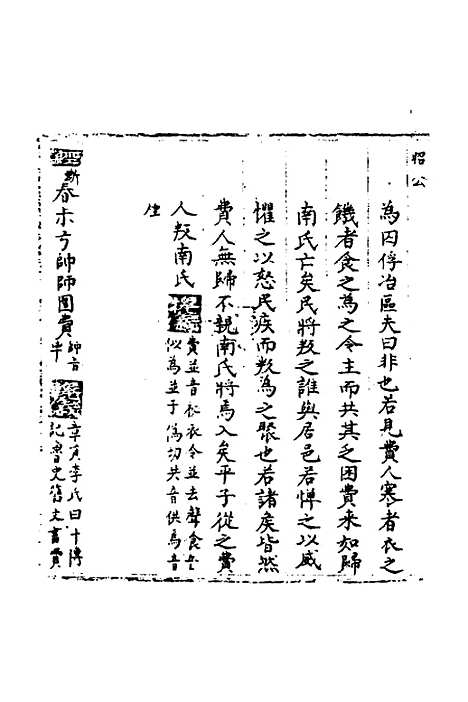 昭公
為囚俘冶區夫曰非也若見費人寒者衣之
饑者食之為之令主而共其乏困費來如歸
南氏亡矣民將叛之誰與居邑若憚之以威
懼之以怒民疾而叛為之聚也若諸矦皆然
費人無歸不親南氏將焉入矣平子從之費
人叛南氏 費並音祕衣令並去聲食音
似為並于偽切共音供焉音
春叔弓帥師圍費 帥音
率 章貢李氏曰十傳
記魯史舊文書費